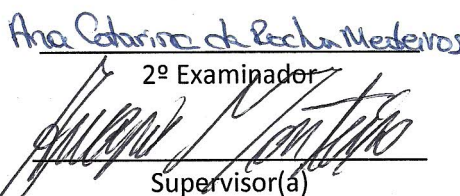 Ana Catarina da Rocha Medeiros
2º Examinador
Monteiro
Supervisor(a)